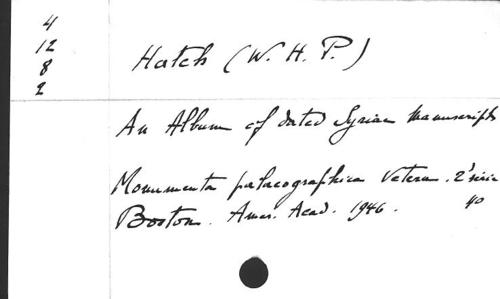 4
12
8
2
Hatch (W. H. P.)
An Album of dated Syriac Manuscripts
Monumenta palaeographica vetera. 2' série
Boston. Amer. Acad. 1946. 40